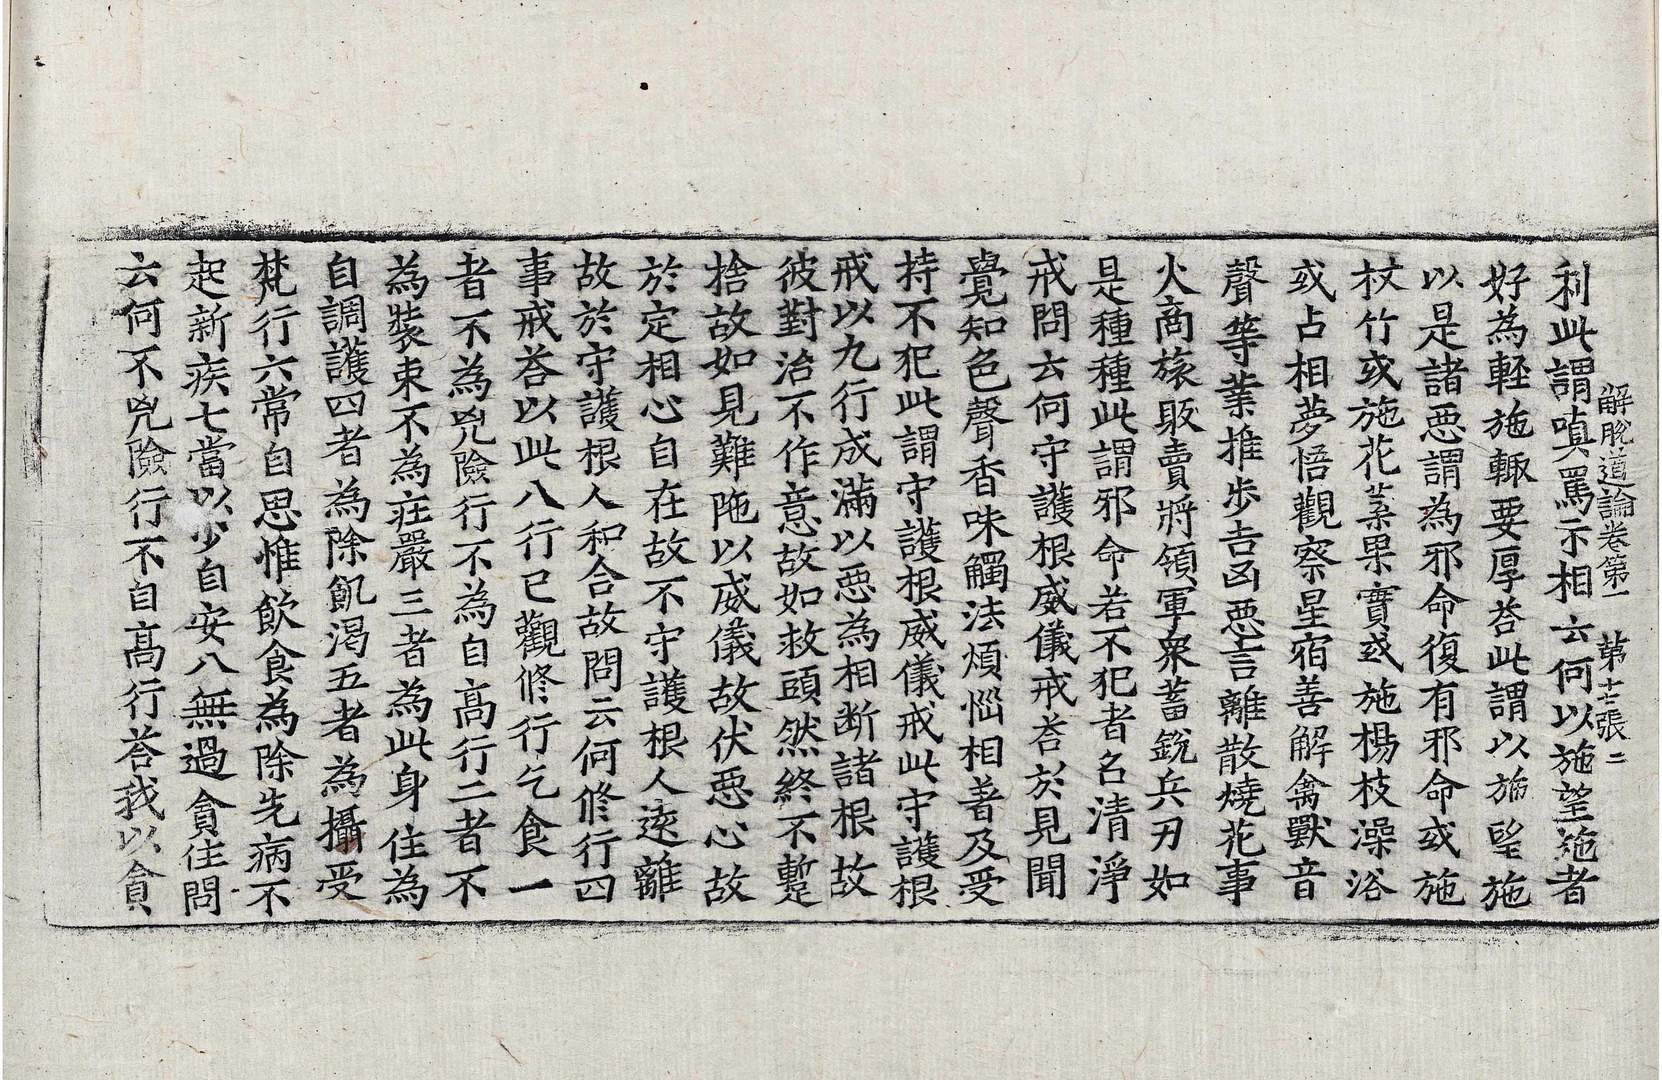 解脫道論卷第一 第十七張 二
利此謂嗔罵示相云何以施望施者
好為輕施輙要厚荅此謂以施望施
以是諸惡謂為邪命復有邪命或施
杖竹或施花葉果實或施楊枝澡浴
或占相夢悟觀察星宿善解禽獸音
聲等業推步吉凶惡言離散燒花事
火商旅販賣將領軍衆蓄銳兵刃如
是種種此謂邪命若不犯者名清淨
戒問云何守護根威儀戒荅於見聞
覺知色聲香味觸法煩惱相著及受
持不犯此謂守護根威儀戒此守護根
戒以九行成滿以惡為相断諸根故
彼對治不作意故如救頭然終不蹔
捨故如見難陁以威儀故伏惡心故
於定相心自在故不守護根人遠離
故於守護根人和合故問云何修行四
事戒荅以此八行已觀修行乞食一
者不為兇險行不為自高行二者不
為裝束不為莊嚴三者為此身住為
自調護四者為除飢渴五者為攝受
梵行六常自思惟飲食為除先病不
起新疾七當以少自安八無過貪住問
云何不兇險行不自高行荅我以貪